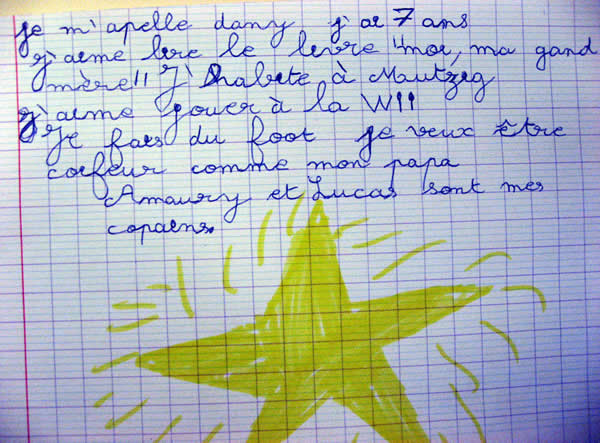 je m'apelle dany j'ai 7 ans
j'aime lire le livre "moi, ma gand
mère" J'habite à Mutzig
j'aime jouer à la WII
Je fais du foot je veux être
coifeur comme mon papa
Amaury et Lucas sont mes
copains.